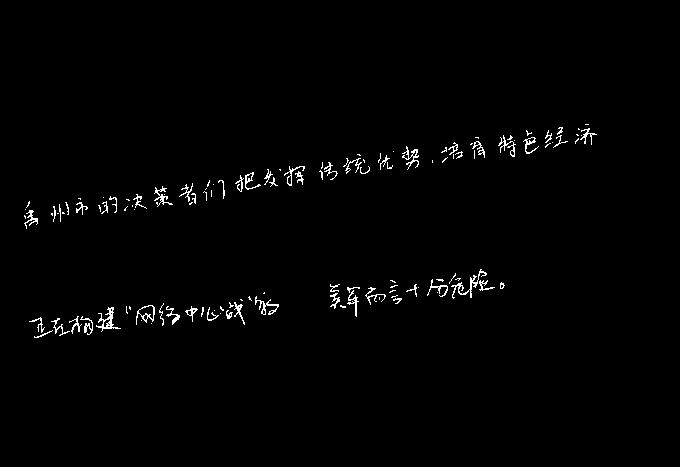 禹州市的决策者们把发挥传统优势,培育特色经济
正在构建“网络中心战”的 美军而言十分危险。